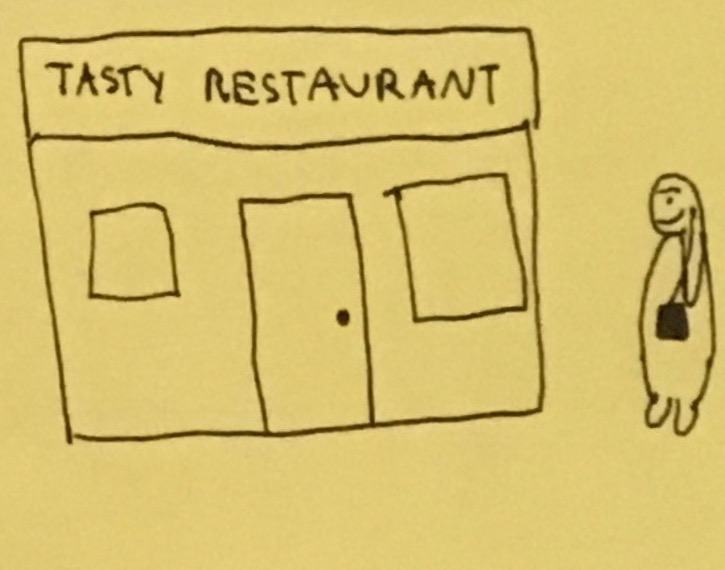 TASTY RESTAURANT